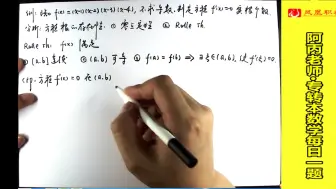 例: 已知 f(x)=(x-1)(x-2)(x-3)(x-4), 不求导数, 判定方程 f'(x)=0 实根个数.
分析: 方程根的存在性: ① 零点定理 ② Rolle Th.
Rolle Th: f(x) 满足
① [a,b] 连续 ② (a,b) 可导 ③ f(a)=f(b) ⇒ ∃ξ∈(a,b), 使 f'(ξ)=0.
即: 方程 f'(x)=0 在 (a,b)
阿丙老师·专转本数学每日一题